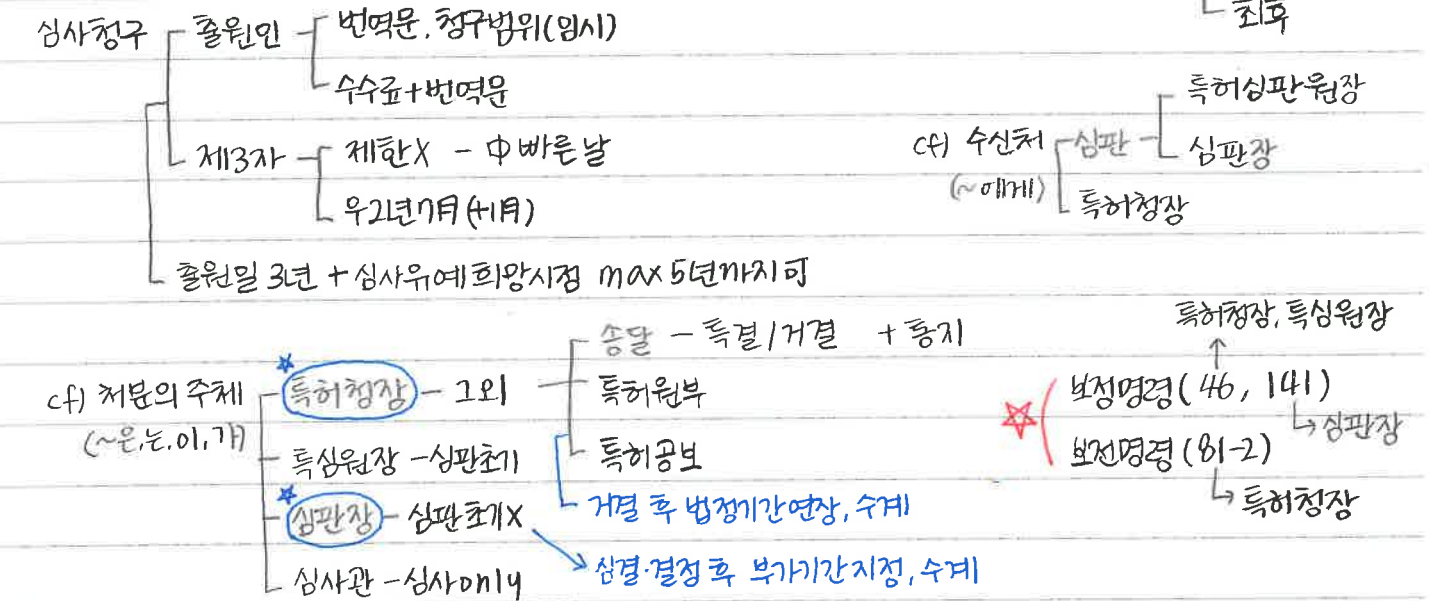 최후
심사청구 출원인 번역문, 청구범위(임시)
수수료+번역문
제3자 제한X - 中 빠른 날
우선 2년7月(+1月)
출원일 3년 + 심사유예 희망시점 max 5년까지 可
cf) 수신처 심판 특허심판원장
심판장
(~에게) 특허청장
cf) 처분의 주체 특허청장 - 그외
(~은,는,이,가)
송달 - 특결/거결 + 통지
특허원부
특허공보
거결 후 법정기간연장, 수계
특심원장 - 심판초기
심판장 - 심판초기X
심결·결정 후 부가기간지정, 수계
심사관 - 심사only
특허청장, 특심원장
보정명령(46, 141)
심판장
보전명령(81-2)
특허청장